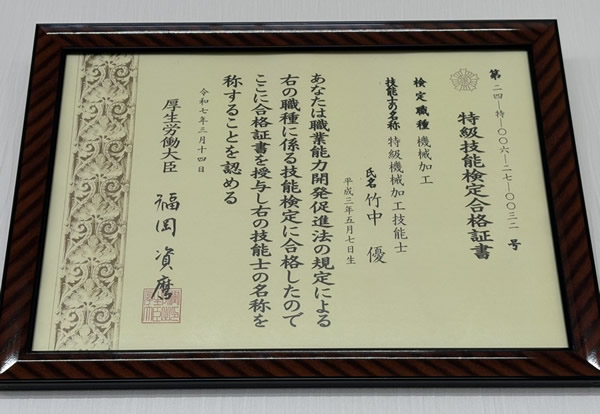 第二四―特―〇〇六―二七―〇〇三二号
特級技能検定合格証書
検定職種 機械加工
技能士の名称 特級機械加工技能士
氏名 竹中 優
平成三年五月七日生
あなたは職業能力開発促進法の規定による
右の職種に係る技能検定に合格したので
ここに合格証書を授与し右の技能士の名称を
称することを認める
令和七年三月十四日
厚生労働大臣 福岡資麿